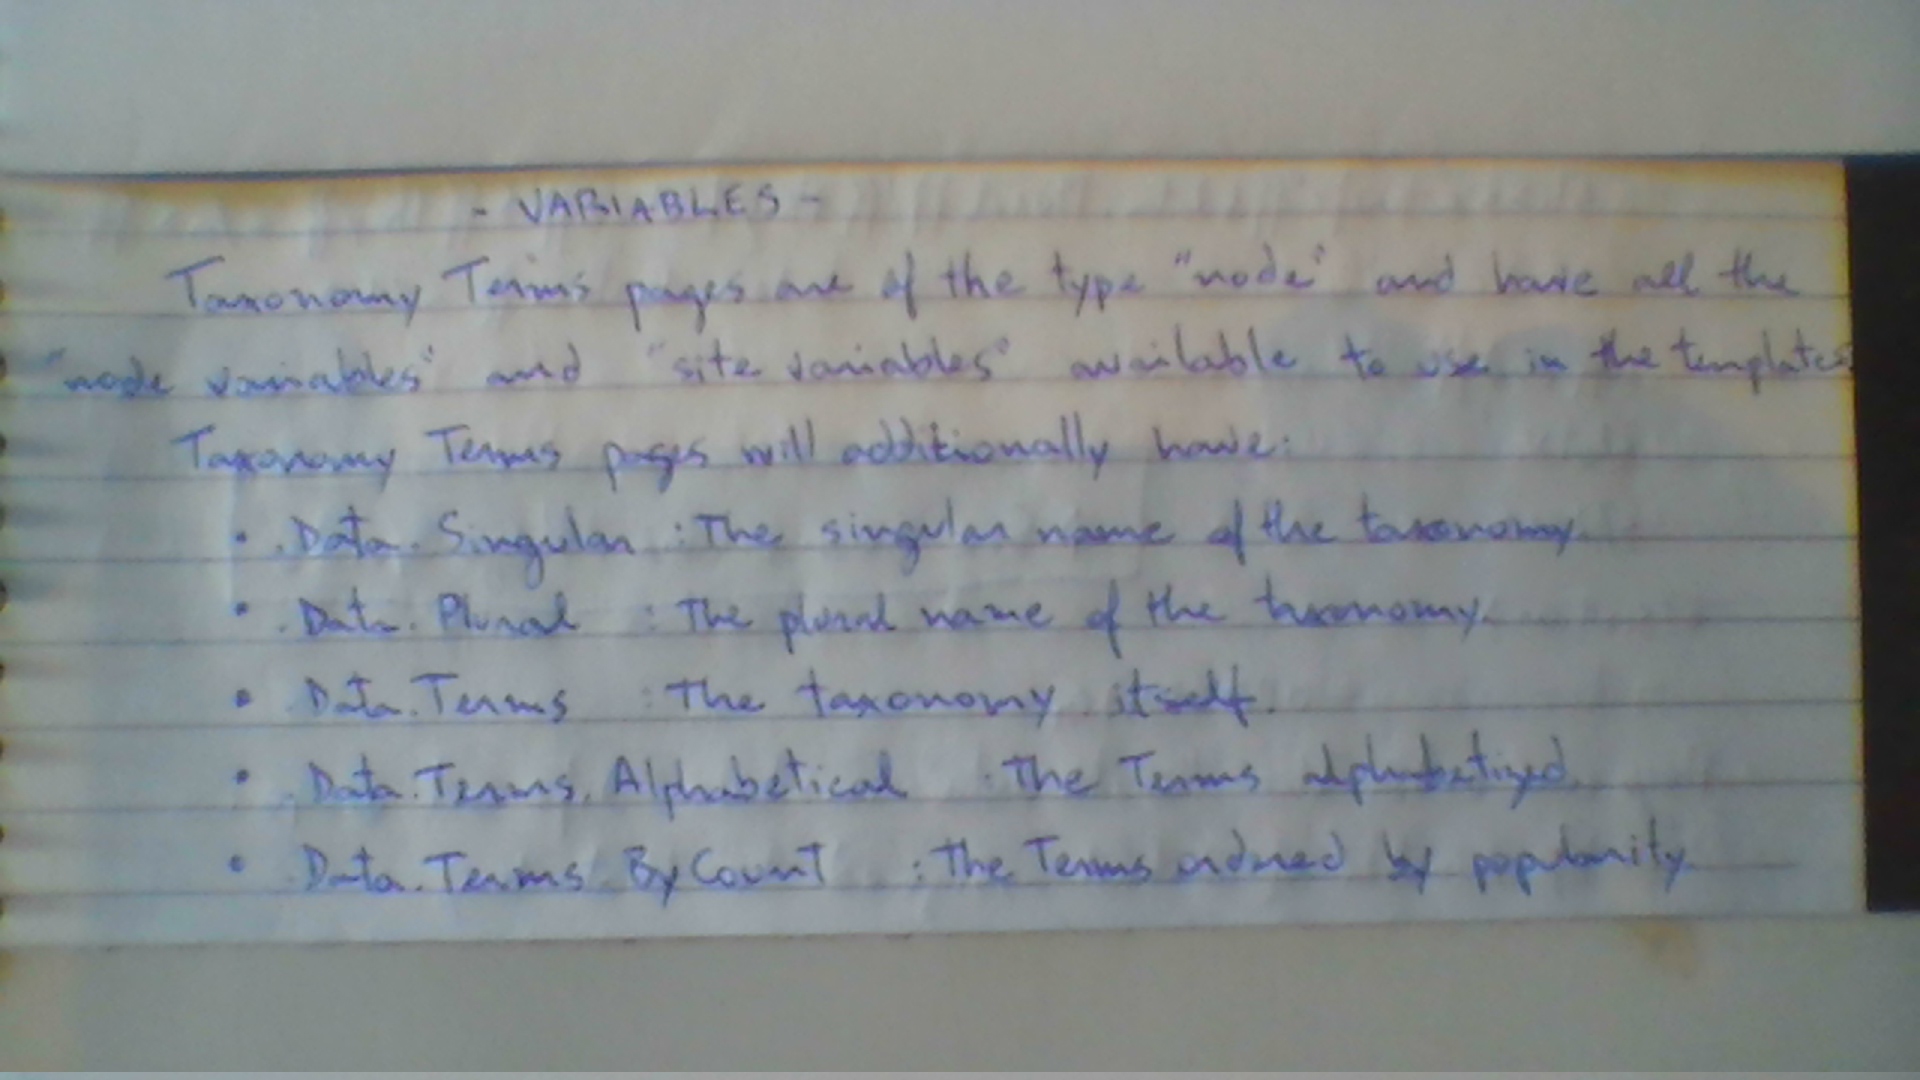 - VARIABLES -
Taxonomy Terms pages are of the type "node" and have all the
"node variables" and "site variables" available to use in the templates.
Taxonomy Terms pages will additionally have:
• .Data.Singular : The singular name of the taxonomy.
• .Data.Plural : The plural name of the taxonomy.
• .Data.Terms : The taxonomy itself.
• .Data.Terms.Alphabetical : The Terms alphabetized
• .Data.Terms.ByCount : The Terms ordered by popularity